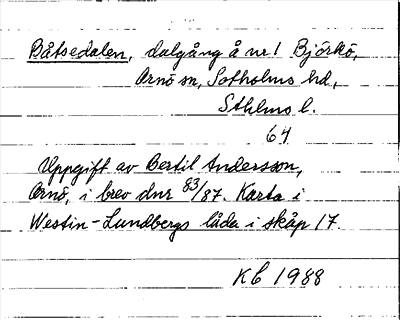 Båtsedalen, dalgång å nr 1 Björkö,
Ornö sn, Sotholms hd,
Sthlms l.
64
Uppgift av Bertil Andersson,
Ornö, i brev dnr 83/87. Karta i
Westin-Lundbergs låda i skåp 17.
KC 1988